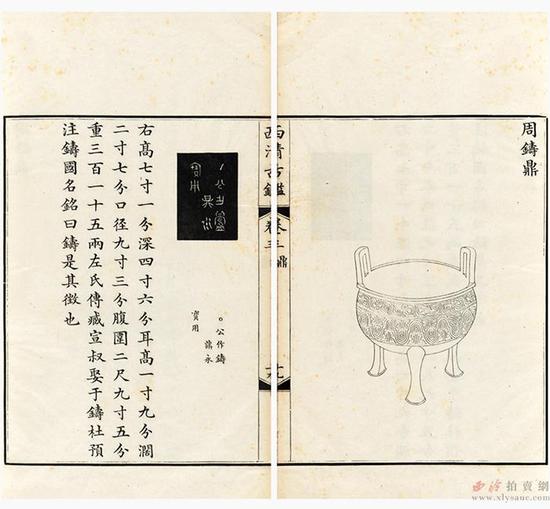 周鑄鼎
西清古鑑 卷三 鼎 十九
○公作鑄
永
寶用
右高七寸一分深四寸六分耳高一寸九分濶
二寸七分口徑九寸三分腹圍二尺九寸五分
重三百一十五兩左氏傳臧宣叔娶于鑄杜預
注鑄國名銘曰鑄是其徵也
西泠拍賣網
www.xlysauc.com